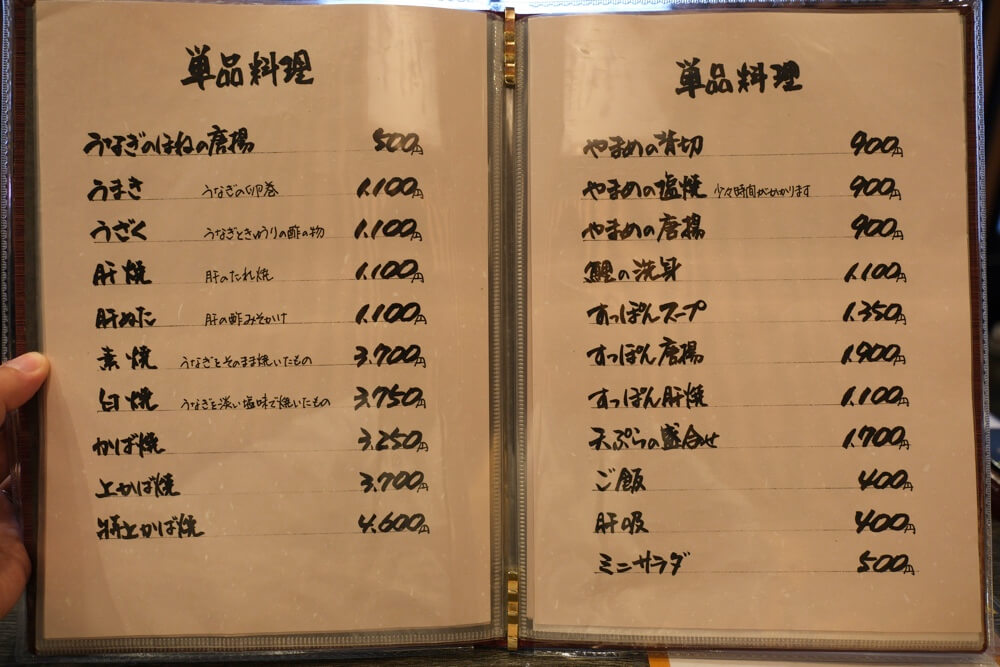 単品料理
うなぎのほねの唐揚 500円
うまき うなぎの卵巻 1,100円
うざく うなぎときゅうりの酢の物 1,100円
肝焼 肝のたれ焼 1,100円
肝ぬた 肝の酢みそかけ 1,100円
素焼 うなぎをそのまま焼いたもの 3,700円
白焼 うなぎを淡い塩味で焼いたもの 3,750円
かば焼 3,250円
上かば焼 3,700円
特上かば焼 4,600円
単品料理
やまめの背切 900円
やまめの塩焼 少々時間がかかります 900円
やまめの唐揚 900円
鯉の洗身 1,100円
すっぽんスープ 1,350円
すっぽん唐揚 1,900円
すっぽん肝焼 1,100円
天ぷらの盛合せ 1,700円
ご飯 400円
肝吸 400円
ミニサラダ 500円